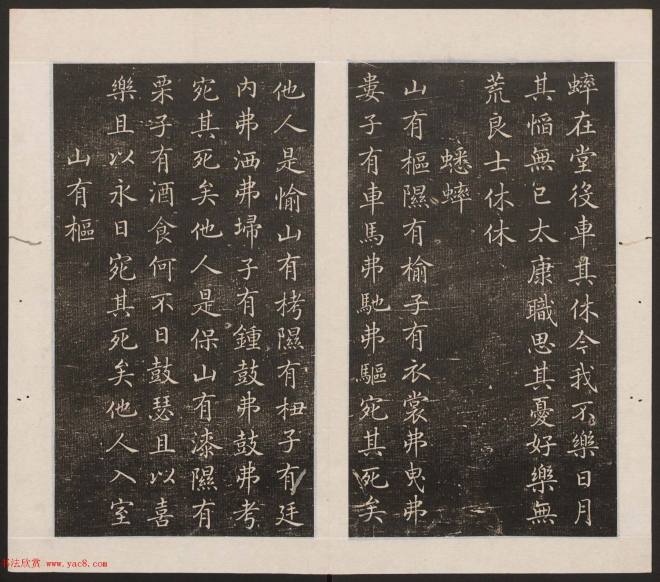 蟀在堂役車其休今我不樂日月
其慆無已太康職思其憂好樂無
荒良士休休
蟋蟀
山有樞隰有榆子有衣裳弗曳弗
婁子有車馬弗馳弗驅宛其死矣
他人是愉山有栲隰有杻子有廷
內弗洒弗埽子有鍾鼓弗鼓弗考
宛其死矣他人是保山有漆隰有
栗子有酒食何不日鼓瑟且以喜
樂且以永日宛其死矣他人入室
山有樞
书法欣赏 www.yac8.com